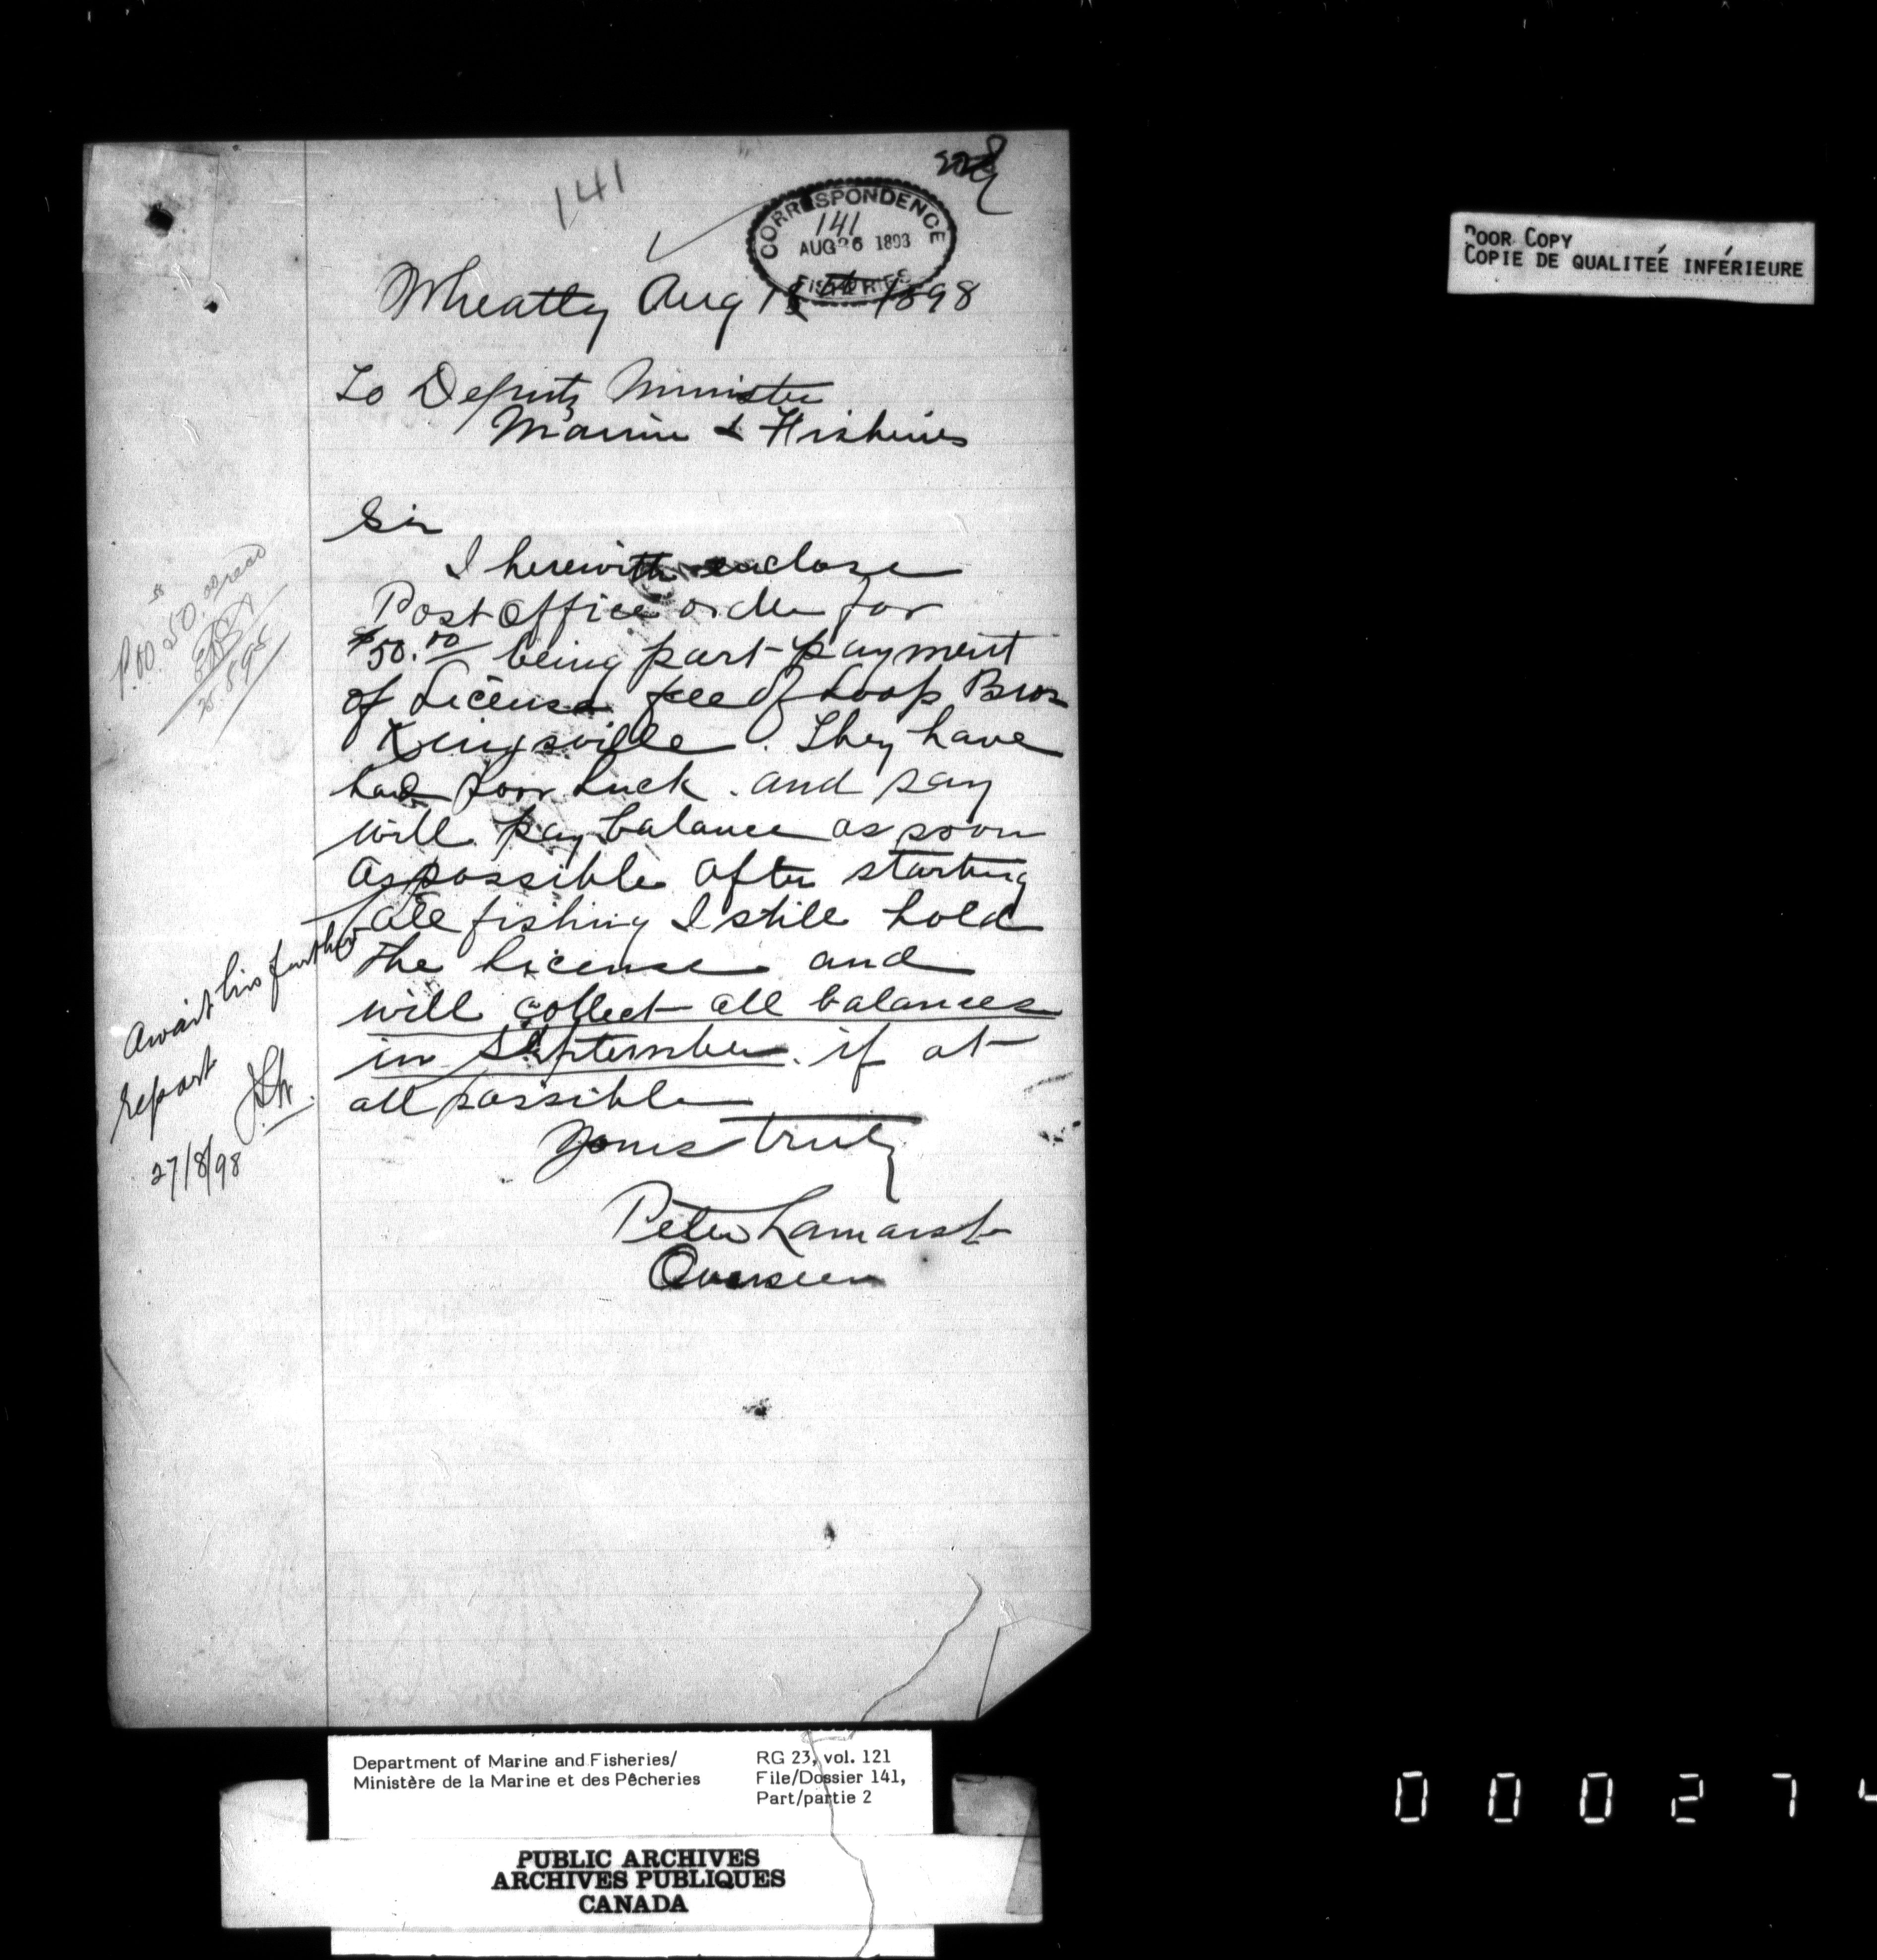 141
CORRESPONDENCE
141
AUG 26 1898
FISHERIES
Wheatly Aug 1898
To Deputy Minister
Marine & Fisheries
Sir
I herewith enclose
Post Office order for
$50.00 being part payment
of License fee of Loop Bros
Kingsville. They have
had poor luck. and say
will pay balance as soon
as possible after starting
fall fishing I still hold
the license and
will collect all balances
in September. if at
all possible
Yours truly
Peter Lamarsh
Overseer
P.O.O. 50.00 recd
Await his further
report
27/8/98
POOR COPY
COPIE DE QUALITEÉ INFÉRIEURE
Department of Marine and Fisheries/
Ministère de la Marine et des Pêcheries
RG 23, vol. 121
File/Dossier 141,
Part/partie 2
PUBLIC ARCHIVES
ARCHIVES PUBLIQUES
CANADA
000274